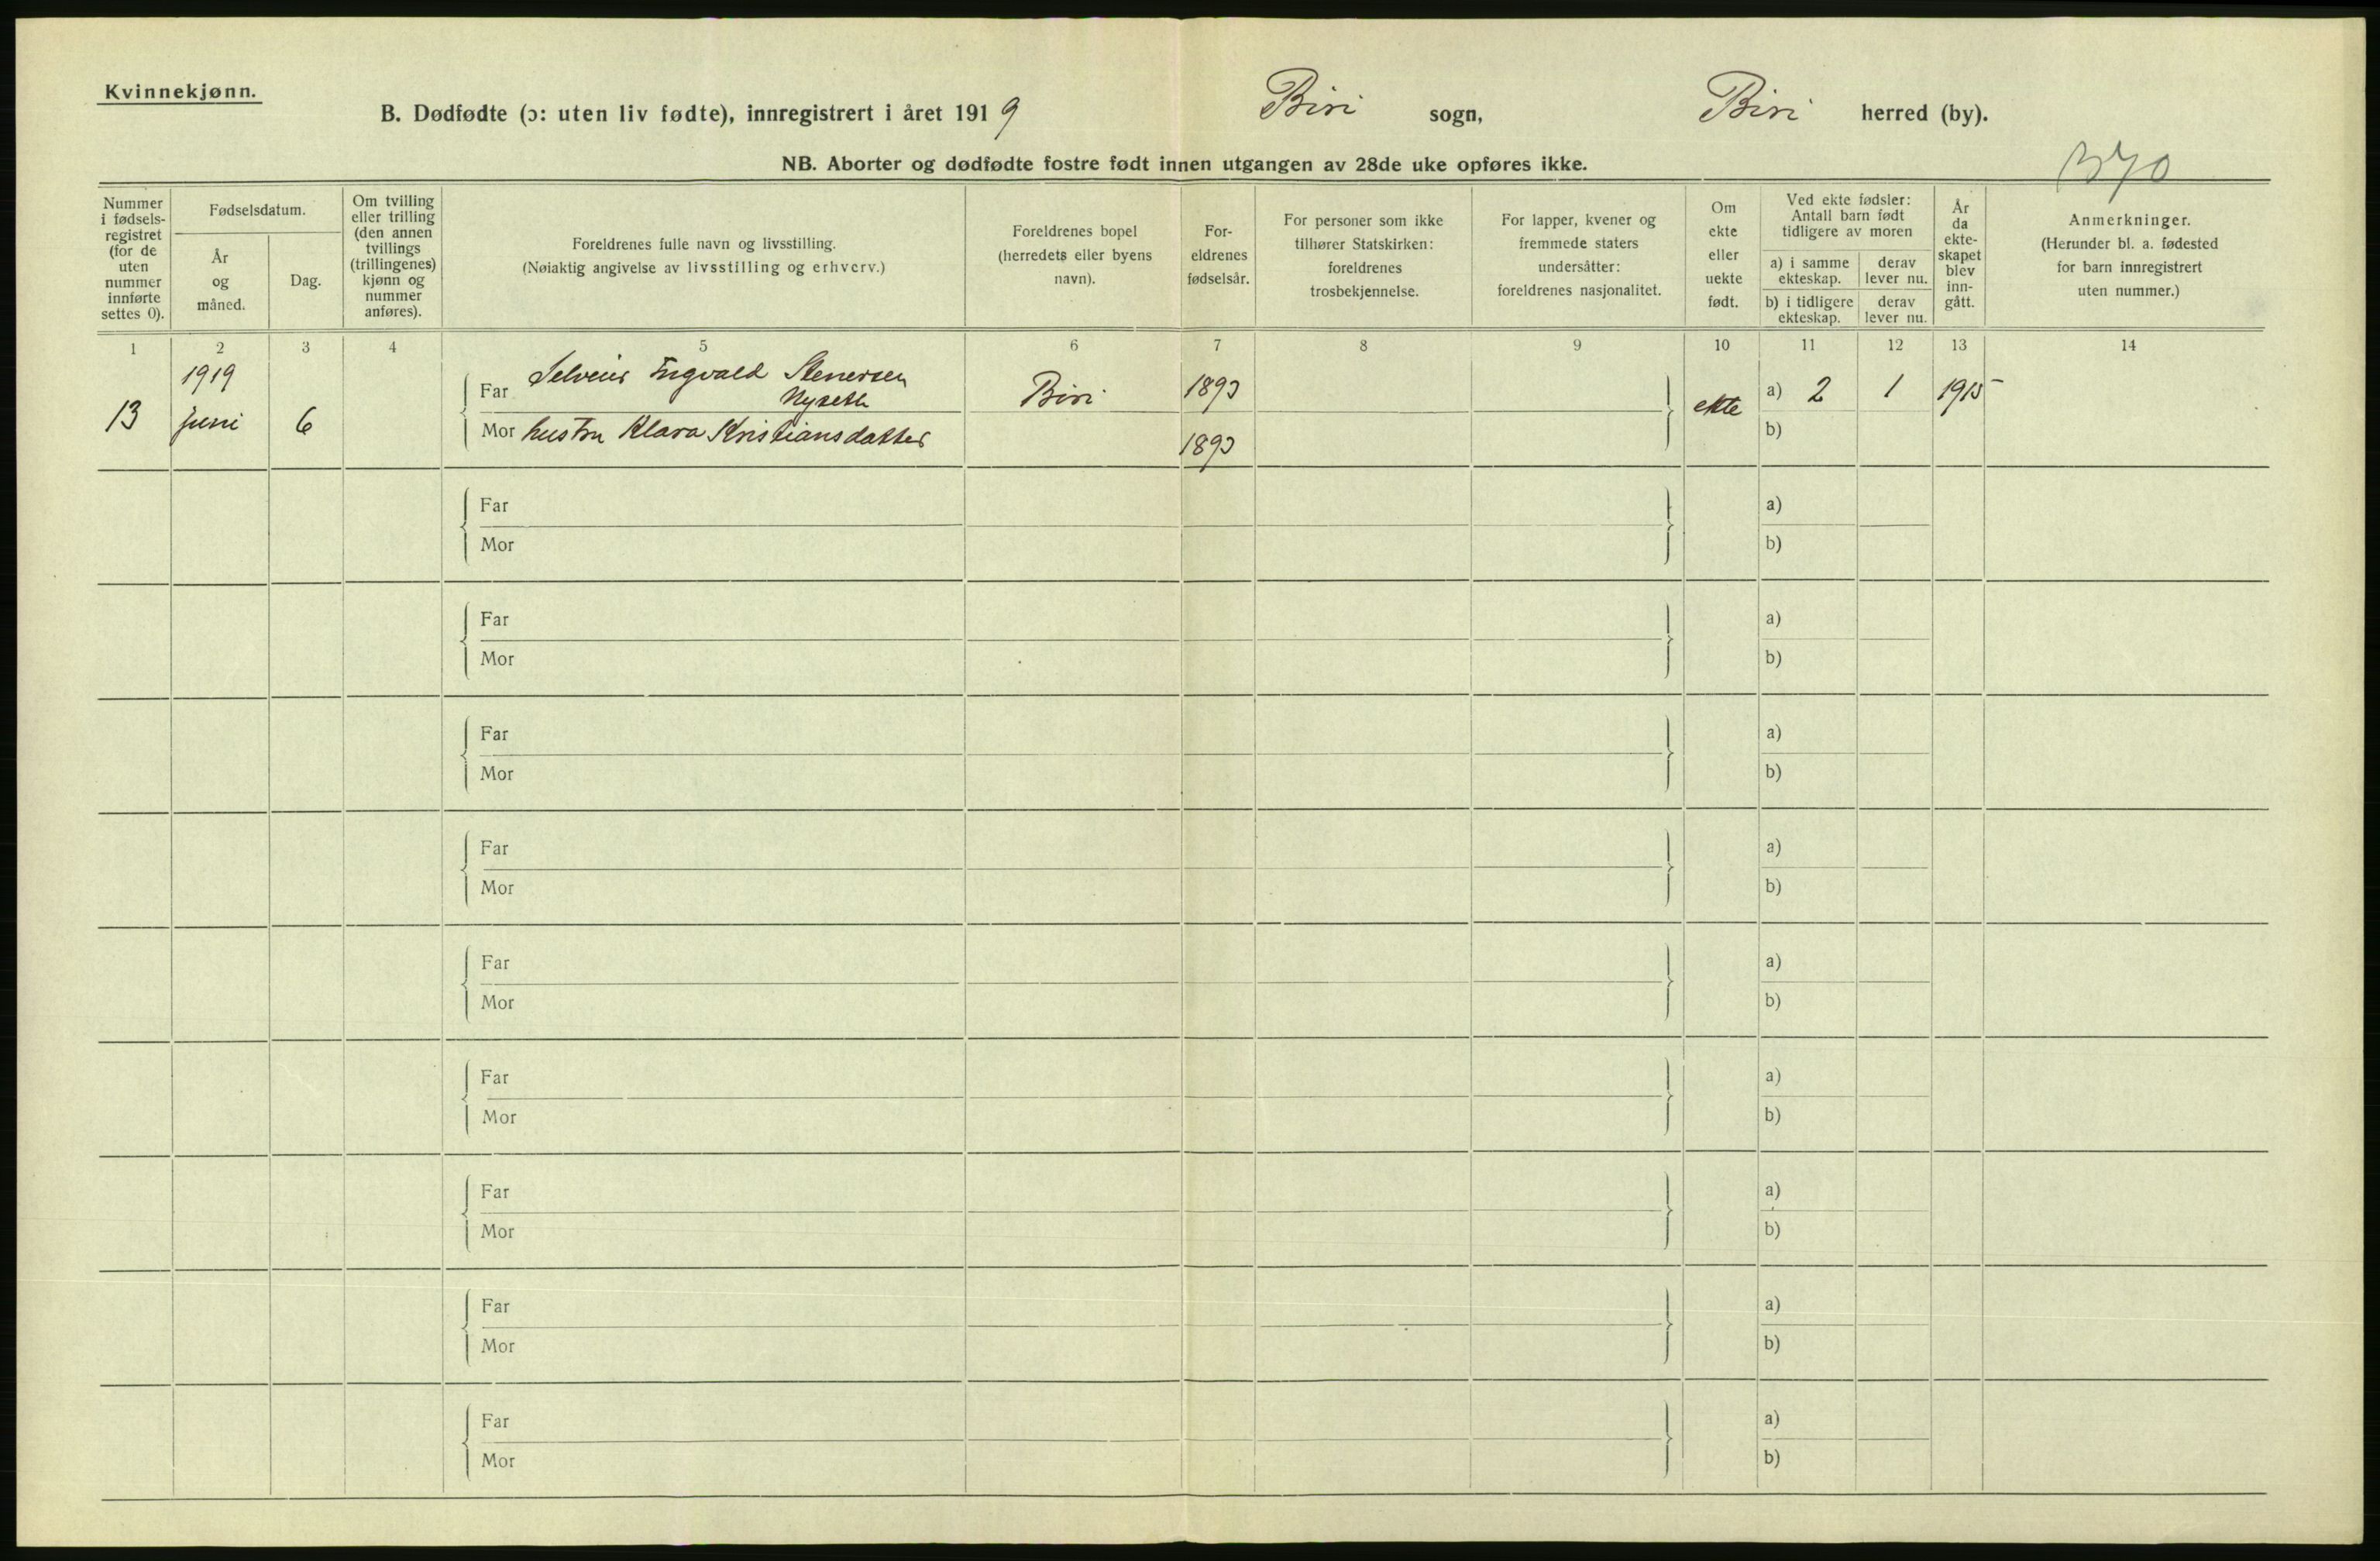 Kvinnekjønn.
B. Dødfødte (ɔ: uten liv fødte), innregistrert i året 1919 Biri sogn, Biri herred (by).
NB. Aborter og dødfødte fostre født innen utgangen av 28de uke opføres ikke.
370
Nummer
i fødsels-
registret
(for de
uten
nummer
innførte
settes 0).
Fødselsdatum.
År
og
måned.
Dag.
Om tvilling
eller trilling
(den annen
tvillings
(trillingenes)
kjønn og
nummer
anføres).
Foreldrenes fulle navn og livsstilling.
(Nøiaktig angivelse av livsstilling og erhverv.)
Foreldrenes bopel
(herredets eller byens
navn).
For-
eldrenes
fødselsår.
For personer som ikke
tilhører Statskirken:
foreldrenes
trosbekjennelse.
For lapper, kvener og
fremmede staters
undersåtter:
foreldrenes nasjonalitet.
Om
ekte
eller
uekte
født.
Ved ekte fødsler:
Antall barn født
tidligere av moren
a) i samme
ekteskap.
derav
lever nu.
b) i tidligere
ekteskap.
derav
lever nu.
År
da
ekte-
skapet
blev
inn-
gått.
Anmerkninger.
(Herunder bl. a. fødested
for barn innregistrert
uten nummer.)
1 2 3 4 5 6 7 8 9 10 11 12 13 14
1919
13 juni 6
Far Ingvald Stenersen
Nyseth
Mor hustru Klara Kristiansdatter
Biri
1893
1893
ekte
a) 2 1 1915
b)
Far a)
Mor b)
Far a)
Mor b)
Far a)
Mor b)
Far a)
Mor b)
Far a)
Mor b)
Far a)
Mor b)
Far a)
Mor b)
Far a)
Mor b)
Far a)
Mor b)